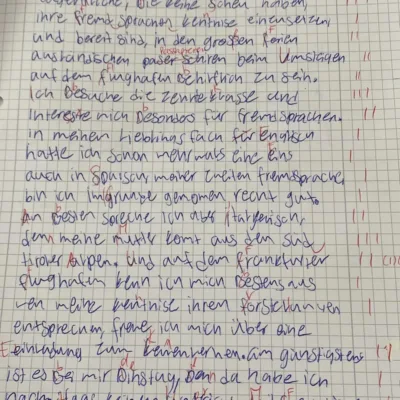 die keine Scheu haben,
ihre fremd sprachen kentnise einsusetzen,
und bereit sind, in den großen ferien
ausländischen beim Umsteigen
auf dem flughafen behilflich zu sein.
Ich besuche die zehnte klasse und
interesire mich besonders für fremdsprachen.
in meinen lieblings fach für Englisch
hatte ich schon mehrmals eine eins
auch in Spanisch, meiner zweiten fremdsprache,
bin ich im grunde genomen recht gut.
an besten spreche ich aber itargenisch,
denn meine mutter komt aus den süd
tiroler Alpen. und auf dem frankfurter
flughafen kenn ich mich bestens aus
wen meine kentnise ihren forstellunven
entsprechen, freue ich mich über eine
einladung zum kennenlernen. am günstigsten
ist es bei mir Dinstag, Denn da habe ich